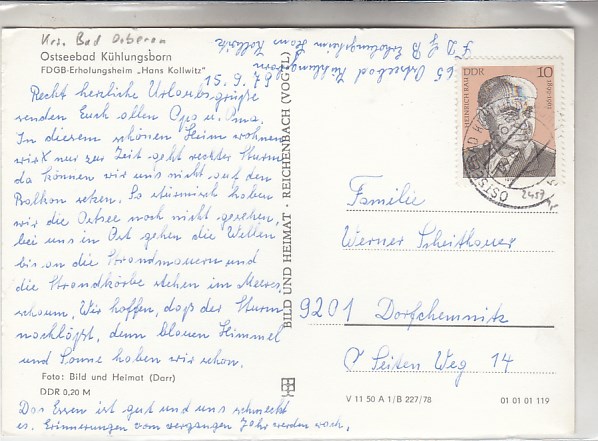 Krs. Bad Doberan
Ostseebad Kühlungsborn
FDGB-Erholungsheim „Hans Kollwitz"
65 Ostseebad Kühlungsborn
F D G B Erholungsheim Hans Kollwitz
15. 9. 79
Recht herzliche Urlaubsgrüße
senden Euch allen Opa u. Oma.
In diesem schönen Heim wohnen
wir nur zur Zeit geht rechter Sturm
da können wir uns nicht auf den
Balkon setzen. So stürmisch haben
wir die Ostsee noch nicht gesehen,
bei uns im Ort gehen die Wellen
bis an die Strandmauern und
die Strandkörbe stehen im Meeres
schaum. Wir hoffen, daß der Sturm
nachläßt, denn blauen Himmel
und Sonne haben wir schon.
Das Essen ist gut und uns schmeckt
es. Erinnerungen vom vergangen Jahr werden wach.
Foto: Bild und Heimat (Darr)
DDR 0,20 M
BILD UND HEIMAT · REICHENBACH (VOGTL)
DDR 10
HEINRICH RAU 1899-1961
OSTSEEBAD KÜHLUNGSBORN
Familie
Werner Scheithauer
9201 Dorfchemnitz
Seiten Weg 14
V 11 50 A 1/B 227/78
01 01 01 119